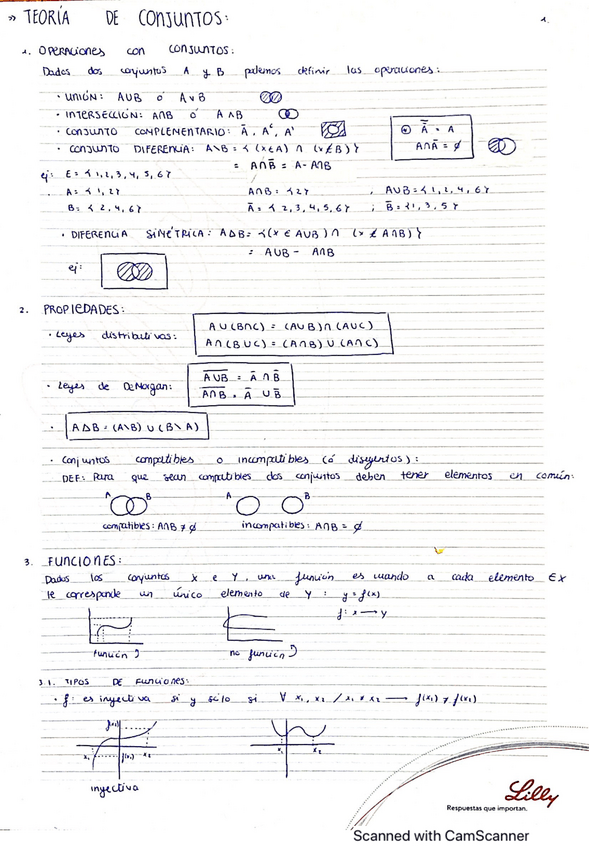 » TEORÍA DE CONJUNTOS: 1.
1. OPERACIONES CON CONJUNTOS:
Dados dos conjuntos A y B podemos definir las operaciones:
· UNIÓN: AUB ó A∨B
· INTERSECCIÓN: A∩B ó A∧B
· CONJUNTO COMPLEMENTARIO: Ā, Aᶜ, A'
· CONJUNTO DIFERENCIA: A\B = {(x∈A) ∩ (x∉B)}
= A∩B̄ = A - A∩B
A̿ = A
A∩Ā = ∅
ej: E = {1, 2, 3, 4, 5, 6}
A = {1, 2} A∩B = {2} , AUB = {1, 2, 4, 6}
B = {2, 4, 6} Ā = {2, 3, 4, 5, 6} ; B̄ = {1, 3, 5}
· DIFERENCIA SIMÉTRICA: A∆B = {(x ∈ AUB) ∩ (x ∉ A∩B)}
= AUB - A∩B
ej:
2. PROPIEDADES:
· Leyes distributivas: A U (B∩C) = (AUB) ∩ (AUC)
A ∩ (B U C) = (A∩B) U (A∩C)
· Leyes de DeMorgan: A̅U̅B̅ = Ā ∩ B̄
A̅∩̅B̅ = Ā U B̄
· A∆B = (A\B) U (B\A)
· Conjuntos compatibles o incompatibles (ó disyuntos):
DEF: Para que sean compatibles dos conjuntos deben tener elementos en común:
A B A B
compatibles: A∩B ≠ ∅ incompatibles: A∩B = ∅
3. FUNCIONES:
Dados los conjuntos X e Y, una función es cuando a cada elemento ∈ X
le corresponde un único elemento de Y : y = f(x)
f: x → y
función no función
3.1. TIPOS DE FUNCIONES:
· f: es inyectiva si y sólo si ∀ x₁, x₂ / x₁ ≠ x₂ → f(x₁) ≠ f(x₂)
f(x₂)
x₁ f(x₁) x₂ x₁ x₂
inyectiva
Lilly
Respuestas que importan.
Scanned with CamScanner